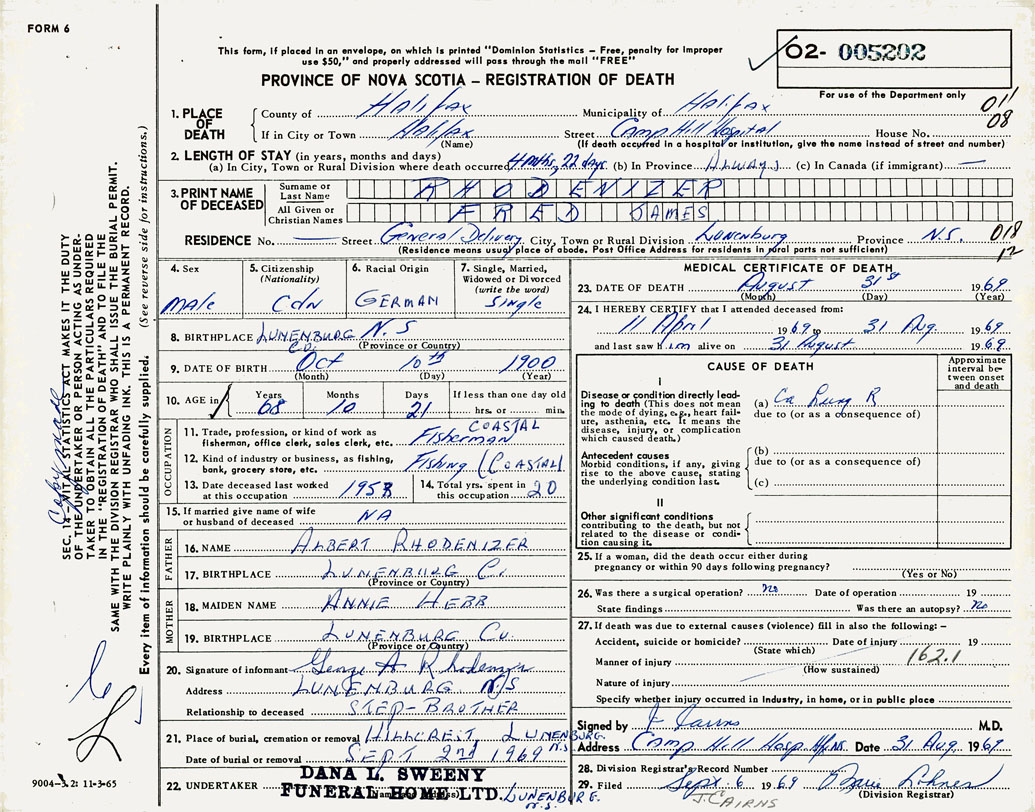 FORM 6
This form, if placed in an envelope, on which is printed "Dominion Statistics – Free, penalty for improper
use $50," and properly addressed will pass through the mail "FREE"
PROVINCE OF NOVA SCOTIA – REGISTRATION OF DEATH
02- 005202
For use of the Department only
011
08
1. PLACE OF DEATH
County of Halifax Municipality of Halifax
If in City or Town Halifax Street Camp Hill Hospital House No.
(Name) (If death occurred in a hospital or institution, give the name instead of street and number)
2. LENGTH OF STAY (in years, months and days)
(a) In City, Town or Rural Division where death occurred 4 mths, 22 days (b) In Province Always (c) In Canada (if immigrant) —
3. PRINT NAME OF DECEASED
Surname or Last Name RHODENIZER
All Given or Christian Names FRED JAMES
RESIDENCE No. — Street General Delivery City, Town or Rural Division Lunenburg Province N.S.
(Residence means usual place of abode. Post Office Address for residents in rural parts not sufficient)
018
12
4. Sex Male
5. Citizenship (Nationality) Cdn
6. Racial Origin GERMAN
7. Single, Married, Widowed or Divorced (write the word) Single
8. BIRTHPLACE LUNENBURG Co. N.S
(Province or Country)
9. DATE OF BIRTH Oct 10th 1900
(Month) (Day) (Year)
10. AGE in Years 68 Months 10 Days 21 If less than one day old hrs. or min.
OCCUPATION
11. Trade, profession, or kind of work as fisherman, office clerk, sales clerk, etc. COASTAL Fisherman
12. Kind of industry or business, as fishing, bank, grocery store, etc. Fishing (COASTAL)
13. Date deceased last worked at this occupation 1958
14. Total yrs. spent in this occupation 20
15. If married give name of wife or husband of deceased NA
FATHER
16. NAME ALBERT RHODENIZER
17. BIRTHPLACE LUNENBURG Co.
(Province or Country)
MOTHER
18. MAIDEN NAME ANNIE HEBB
19. BIRTHPLACE LUNENBURG Co.
(Province or Country)
20. Signature of informant George A Rhodenizer
Address LUNENBURG N.S
Relationship to deceased STEP-BROTHER
21. Place of burial, cremation or removal HILLCREST, LUNENBURG. N.S.
Date of burial or removal SEPT 2nd 1969
22. UNDERTAKER DANA L. SWEENY
FUNERAL HOME LTD. LUNENBURG. N.S.
MEDICAL CERTIFICATE OF DEATH
23. DATE OF DEATH August 31st 1969
(Month) (Day) (Year)
24. I HEREBY CERTIFY that I attended deceased from:
11 April 1969 to 31 Aug. 1969
and last saw him alive on 31 August 1969
CAUSE OF DEATH
Approximate interval between onset and death
I
Disease or condition directly leading to death (This does not mean the mode of dying, e.g., heart failure, asthenia, etc. It means the disease, injury, or complication which caused death.)
(a) Ca Lung R
due to (or as a consequence of)
Antecedent causes
Morbid conditions, if any, giving rise to the above cause, stating the underlying condition last.
(b)
due to (or as a consequence of)
(c)
II
Other significant conditions
contributing to the death, but not related to the disease or condition causing it.
25. If a woman, did the death occur either during
pregnancy or within 90 days following pregnancy?
(Yes or No)
26. Was there a surgical operation? no Date of operation 19
State findings Was there an autopsy? no
27. If death was due to external causes (violence) fill in also the following: –
Accident, suicide or homicide? Date of injury 19
(State which)
Manner of injury 162.1
(How sustained)
Nature of injury
Specify whether injury occurred in Industry, in home, or in public place
Signed by J Cairns M.D.
Address Camp Hill Hosp Date 31 Aug. 1969
28. Division Registrar's Record Number
29. Filed Sept. 6 1969
(Division Registrar)
J. CAIRNS
SEC. 14 – VITAL STATISTICS ACT MAKES IT THE DUTY
OF THE UNDERTAKER OR PERSON ACTING AS UNDERTAKER
TO OBTAIN ALL THE PARTICULARS REQUIRED
IN THE "REGISTRATION OF DEATH" AND TO FILE THE
SAME WITH THE DIVISION REGISTRAR WHO SHALL ISSUE THE BURIAL PERMIT.
WRITE PLAINLY WITH UNFADING INK. THIS IS A PERMANENT RECORD.
Every item of information should be carefully supplied. (See reverse side for instructions.)
9004-3.2: 11-3-65